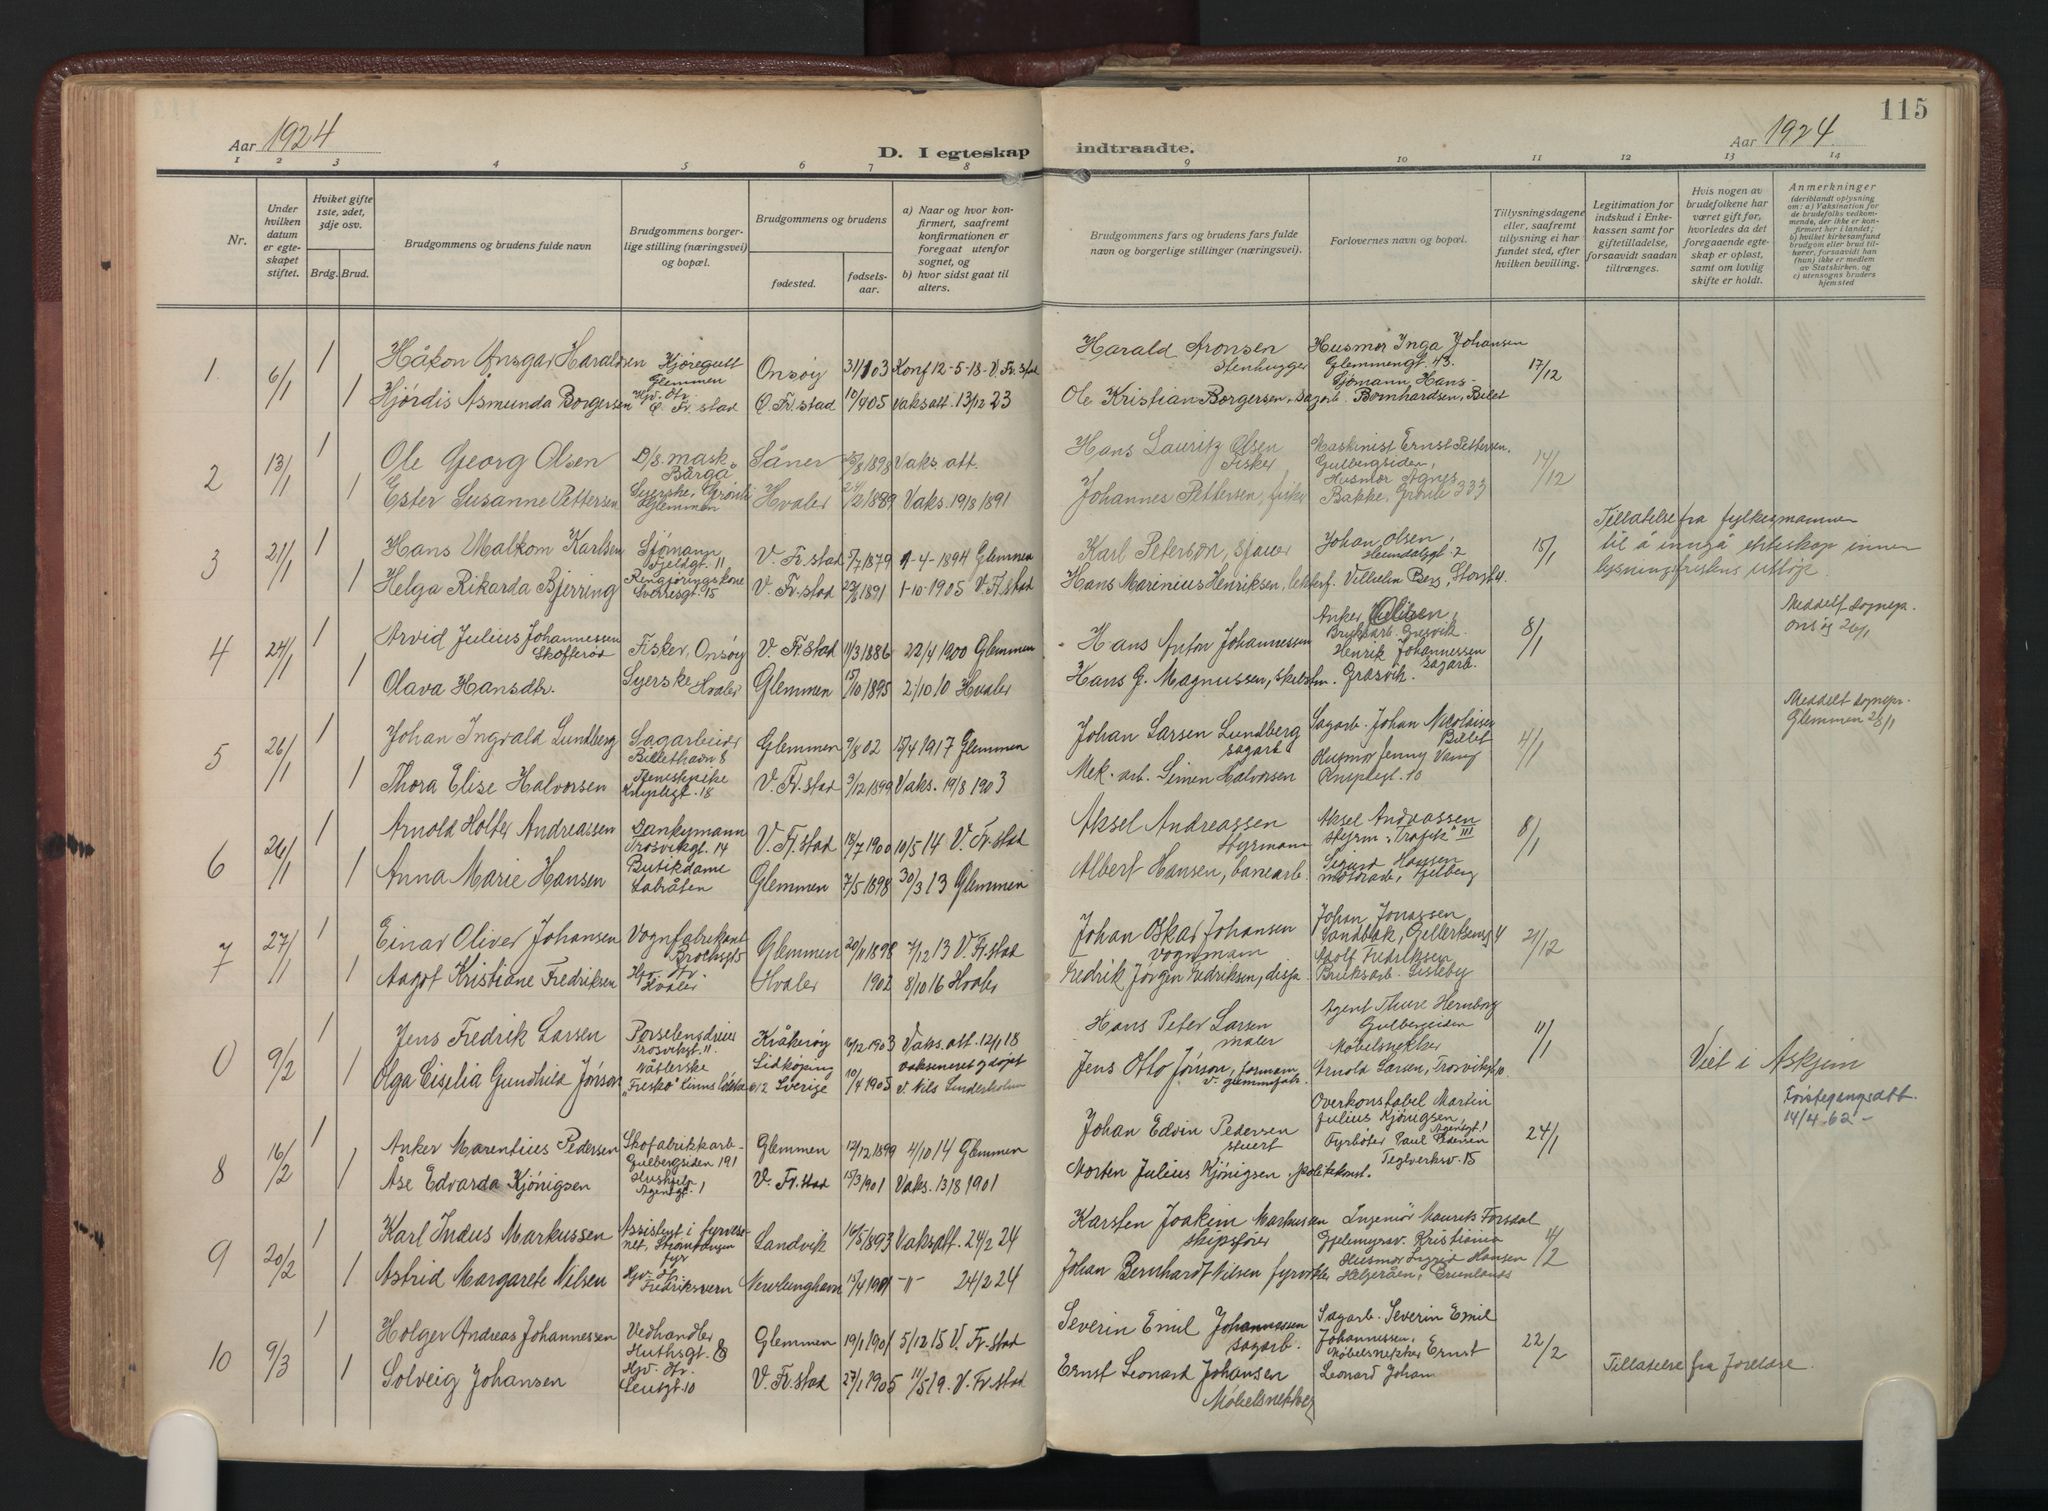 115
Aar 1924
D. I egteskap indtraadte.
Aar 1924.
1 2 3 4 5 6 7 8 9 10 11 12 13 14
Nr.
Under hvilken datum er egteskapet stiftet.
Hviket gifte 1ste, 2det, 3dje osv.
Brdg. Brud.
Brudgommens og brudens fulde navn
Brudgommens borgerlige stilling (næringsvei) og bopæl.
Brudgommens og brudens
fødested.
fødselsaar.
a) Naar og hvor konfirmert, saafremt konfirmationen er foregaat utenfor sognet, og
b) hvor sidst gaat til alters.
Brudgommens fars og brudens fars fulde navn og borgerlige stillinger (næringsvei).
Forlovernes navn og bopæl.
Tillysningsdagene eller, saafremt tillysning ei har fundet sted, efter hvilken bevilling.
Legitimation for indskud i Enkekassen samt for giftetilladelse, forsaavidt saadan tiltrænges.
Hvis nogen av brudefolkene har været gift før, hvorledes da det foregaaende egteskap er opløst, samt om lovlig skifte er holdt.
Anmerkninger (deriblandt oplysning om: a) Vaksination for de brudefolks vedkommende, der ikke er konfirmert her i landet; b) hvilket kirkesamfund brudgom eller brud tilhører, forsaavidt han (hun) ikke er medlem av Statskirken, og c) utensogns bruders hjemsted
1. 6/1 1 Håkon Ansgar Haraldsen Kjøregutt Glemmen Onsøy 31/1 03 Konf 12-5-18 V. Fr.stad Harald Aronsen Stenhugger Husmor Inga Johansen Glemmengt. 43. 17/12
1 Hjørdis Åsmunda Borgersen Hjv. dtr. Ø. Fr.stad Ø. Fr.stad 10/4 05 Vaks att. 13/12 23 Ole Kristian Borgersen, sagarb. Sjømann Hans Bernhardsen, Billet
2 13/1 1 Ole Georg Olsen D/S mask. Båner 1898 Vaks. att. Hans Lauritz Olsen Fisker Maskinist Ernst Pettersen, Gulbergsiden, 14/12
1 Ester Susanne Pettersen Syerske, Glemmen Hvaler 24/2 1889 Vaks. 19/8 1891 Johannes Pettersen, fisker Husmor Agnes Bakke, Grønli 333
3 21/1 1 Hans Malkom Karlsen Sjømann Fjeldgt. 11 V. Fr.stad 5/7 1879 1-4-1894 Glemmen Karl Peterson, sjauer Johan Olsen, 2 15/1 Tillatelse fra fylkesmannen til å inngå ekteskap innen lysningsfristens utløp.
1 Helga Rikarda Bjerring Rengjøringskone Sverresgt. 15 V. Fr.stad 1891 1-10-1905 V. Fr.stad Hans Marinius Henriksen, Vilhelm Berg, Storgt 4.
4 24/1 1 Arvid Julius Johannessen Skofterød Fisker, Onsøy V. Fr.stad 11/3 1886 22/4 1900 Glemmen Hans Anton Johannessen Anker Olsen, Bruksarb. Gresvik. 8/1 Meddelt sognepr. Onsøy 26/1
1 Olava Hansdtr. Syerske Hvaler Glemmen 15/10 1895 2/10 10 Hvaler Hans G. Magnussen, Henrik Johannessen sagarb. Gresvik.
Meddelt sognepr. Glemmen 28/1
5 26/1 1 Johan Ingvald Lundberg Sagarbeider Billethavn 8 Glemmen 9/8 02 15/4 1917 Glemmen Johan Larsen Lundberg sagarb Sagarb. Johan Nicolaisen Billet 4/1
1 Thora Elise Halvorsen Tjenestpike 18 V. Fr.stad 9/12 1899 Vaks. 19/8 1903 Mek. arb. Simen Halvorsen Husmor Jenny Vang 10
6 26/1 1 Arnold Holter Andreassen Dankymann Trosvikgt. 14 V. Fr.stad 18/7 1900 10/5 14 V. Fr.stad Aksel Andreassen Styrmann Aksel Andreassen Styrm. „Trafik" III 8/1
1 Anna Marie Hansen Butikdame Labråten Glemmen 7/5 1898 30/3 13 Glemmen Albert Hansen, banearb. Sigurd Hansen motorarb.
7 27/1 1 Einar Oliver Johansen Vognfabrikant Brochsgt 5 Glemmen 20/11 1898 7/12 13 V. Fr.stad Johan Oskar Johansen vognmann Johan Jonassen 4 21/12
1 Aagot Kristiane Fredriksen Hjv. dtr. Hvaler Hvaler 1902 8/10 16 Hvaler Fredrik Jørgen Fredriksen, Adolf Fredriksen Bruksarb. Lisleby
0 9/2 1 Jens Fredrik Larsen Porselensdreier Trosvikgt. 11. Kråkerøy 16/12 1903 Vaks. att. 12/1 18 Hans Peter Larsen maler Agent Thure Hernborg Gulbergsiden 11/1 Viet i Askim
1 Olga Cisilia Gundhild Jónson Nåtlerske Lidköping Sverige 10/4 1905 Vaksineret og døpt v. Nils Jens Otto Jónson, formann Møbelsnekker Arnold Larsen, Trosvikgt 10.
Førstegangsatt. 14/4-62-
8 16/2 1 Anker Marentius Pedersen Skofabrikkarb. Gulbergsiden 191 Glemmen 12/12 1899 4/10 14 Glemmen Johan Edvin Pedersen stuert Overkonstabel Martin Julius Kjønigsen, Agentgt. 1 24/1
1 Åse Edvarda Kjønigsen Hushjelp Agentgt. 1 V. Fr.stad 15/3 1901 Vaks. 13/8 1901 Morten Julius Kjønigsen, politikonst. Fyrbøter Paul Pedersen Teglverksv. 15
9 20/2 1 Karl Indus Markussen Assistent i fyrvesenet, fyr Landvik 16/5 1893 Vaksatt. 24/2 24 Karsten Joakim Markussen skipsfører Ingeniør Maurits Forsdal Gjelemyrsv. Kristiania 11/2
1 Astrid Margarete Nilsen Hjv. dtr. Fredriksvern Nevlunghavn 15/4 1901 -"- 24/2 24 Johan Bernhardt Nilsen fyrvokter Husmor Ingrid Hansen Helgeråen, Brunlanes
10 9/3 1 Holger Andreas Johannessen Vedhandler Huthsgt. 8 Glemmen 19/1 1901 5/12 15 V. Fr.stad Severin Emil Johannessen sagarb. Sagarb. Severin Emil Johannessen, 22/2 Tillatelse fra foreldre.
1 Solveig Johansen Hjv. dtr. 10 V. Fr.stad 27/1 1905 11/5 19. V. Fr.stad Ernst Leonard Johansen Møbelsnekker Møbelsnekker Ernst Leonard Johan